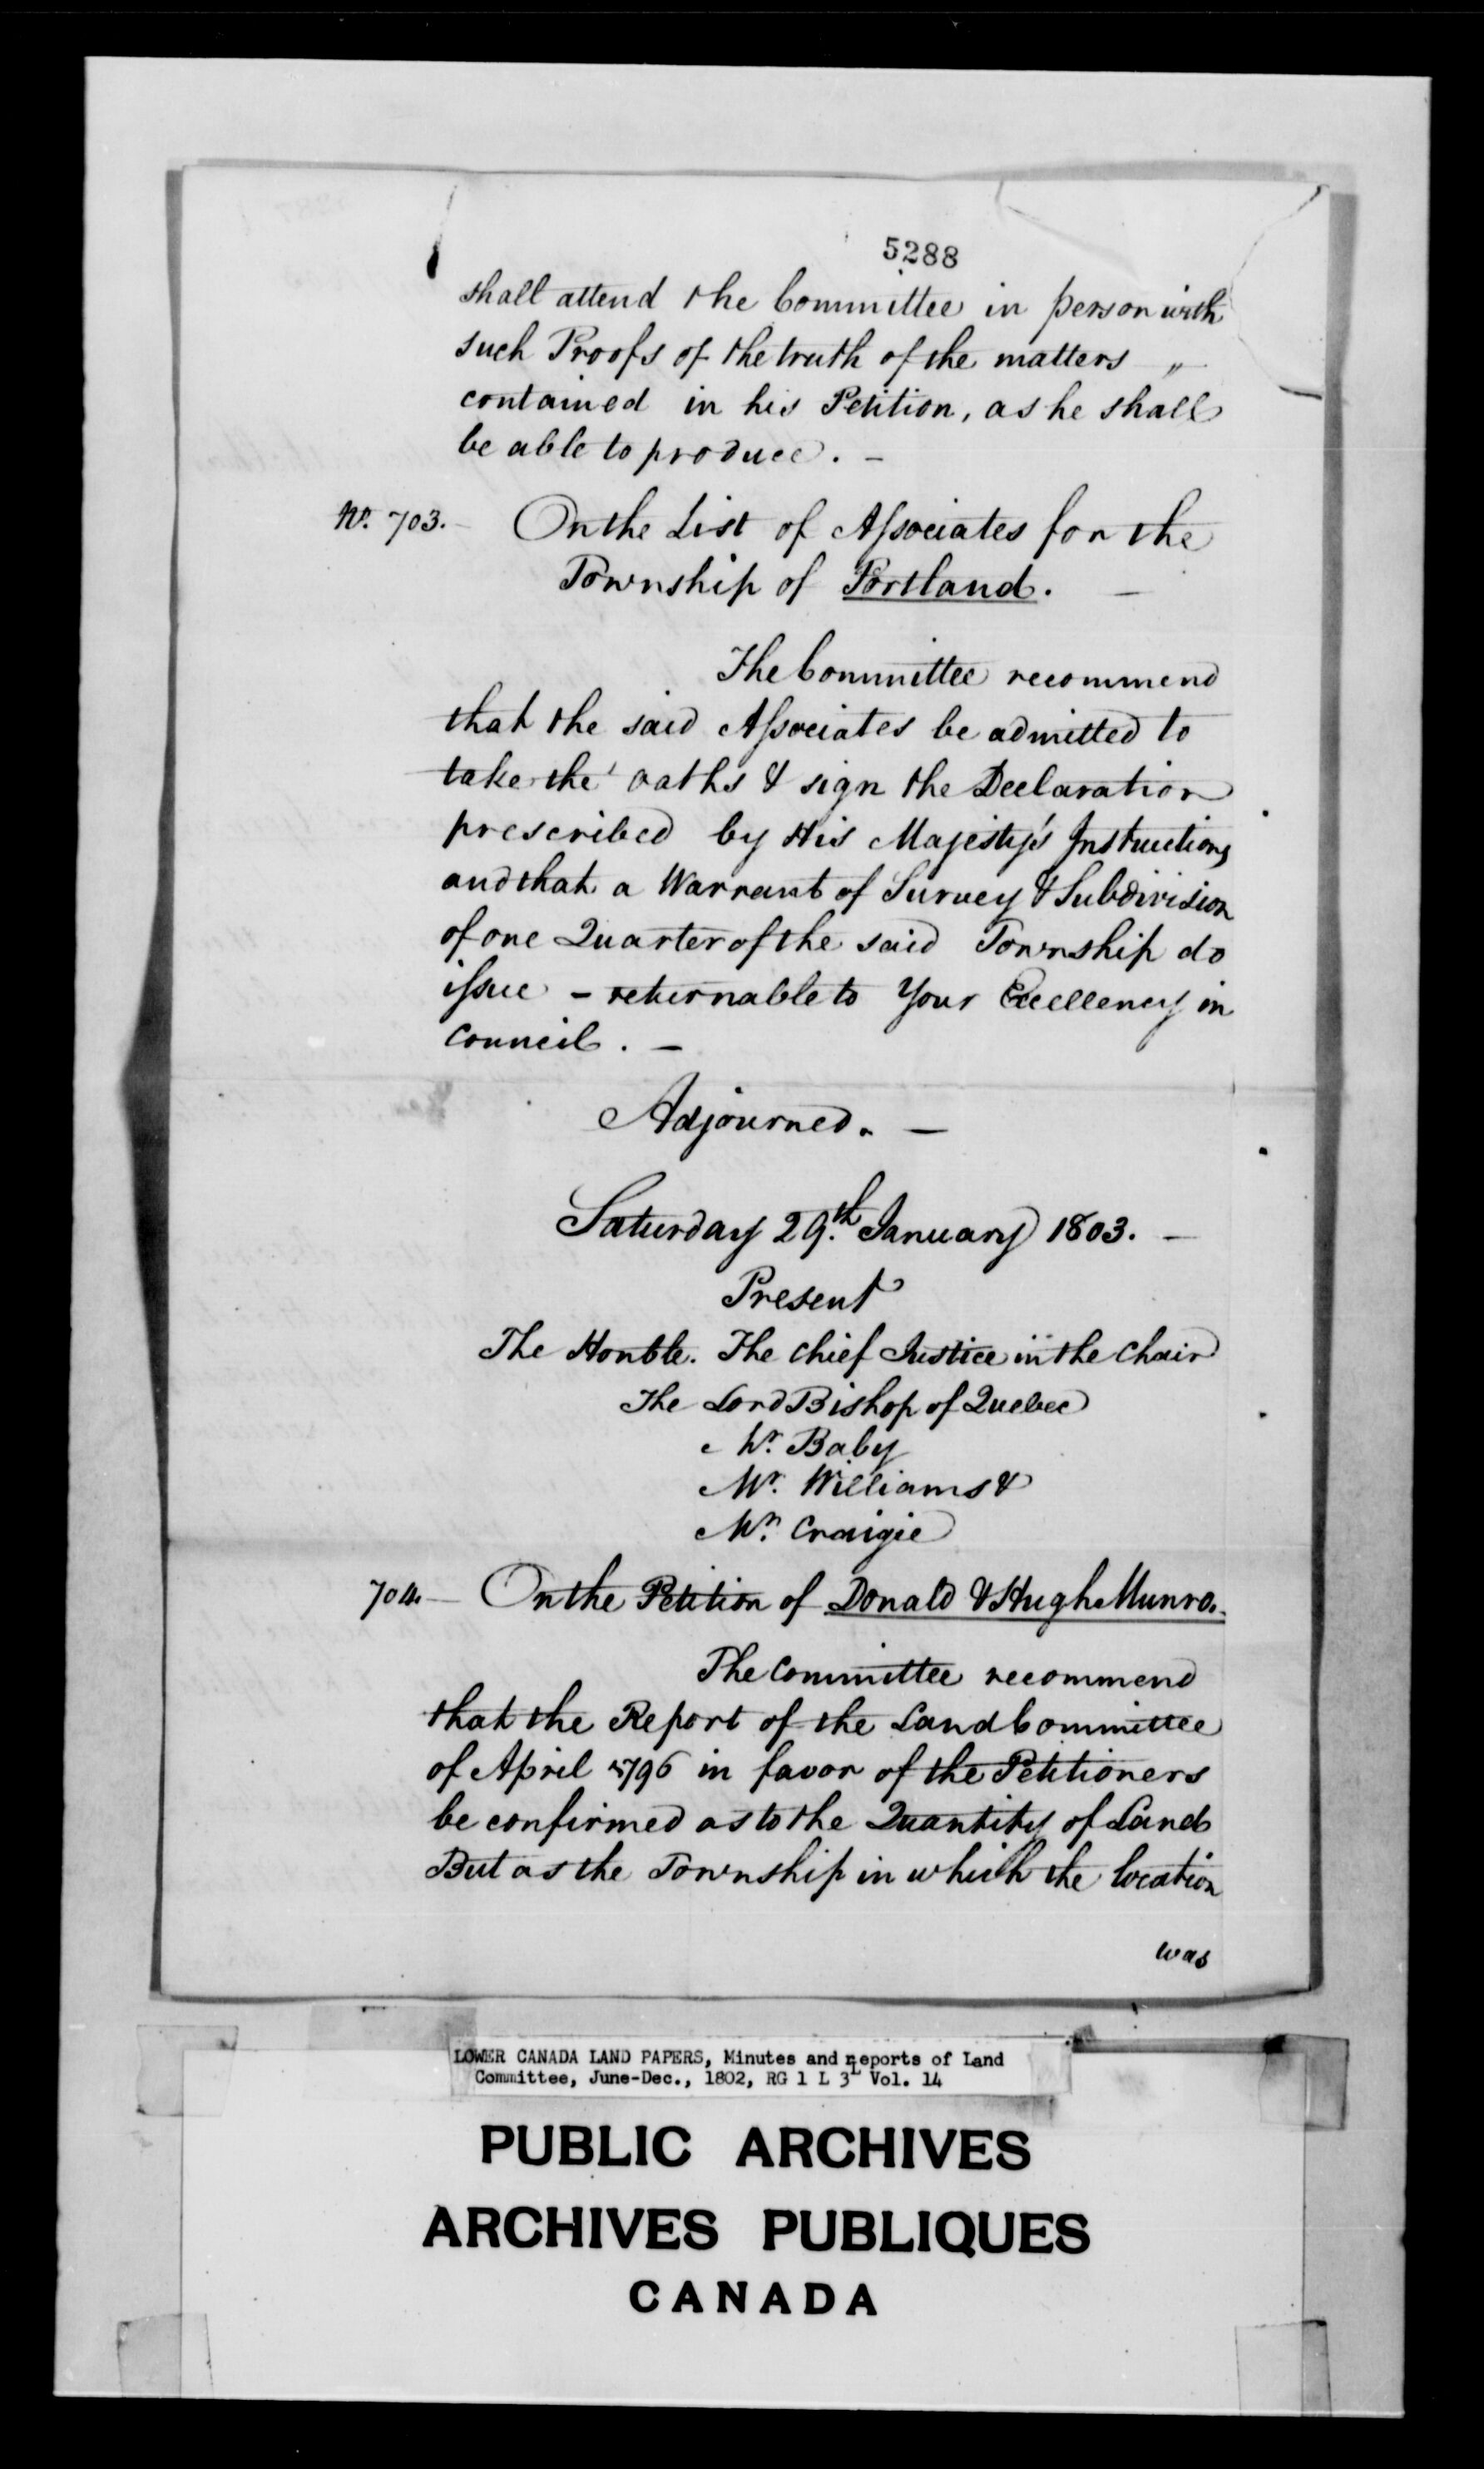 5288
shall attend the Committee in person with
such Proofs of the truth of the matters "
contained in his Petition, as he shall
be able to produce. -
No. 703. - On the List of Associates for the
Township of Portland. -
The Committee recommend
that the said Associates be admitted to
take the oaths & sign the Declaration
prescribed by His Majesty's Instructions
and that a Warrant of Survey & Subdivision
of one Quarter of the said Township do
issue - returnable to Your Excellency in
Council. -
Adjourned. -
Saturday 29th. January 1803. -
Present
The Honble. The Chief Justice in the Chair
The Lord Bishop of Quebec
Mr. Baby
Mr. Williams &
Mr. Craigie
704. - On the Petition of Donald & Hugh Munro.
The Committee recommend
that the Report of the Land Committee
of April 1796 in favor of the Petitioners
be confirmed as to the Quantity of Land
But as the Township in which the location
was
LOWER CANADA LAND PAPERS, Minutes and reports of Land
Committee, June-Dec., 1802, RG 1 L 3L Vol. 14
PUBLIC ARCHIVES
ARCHIVES PUBLIQUES
CANADA